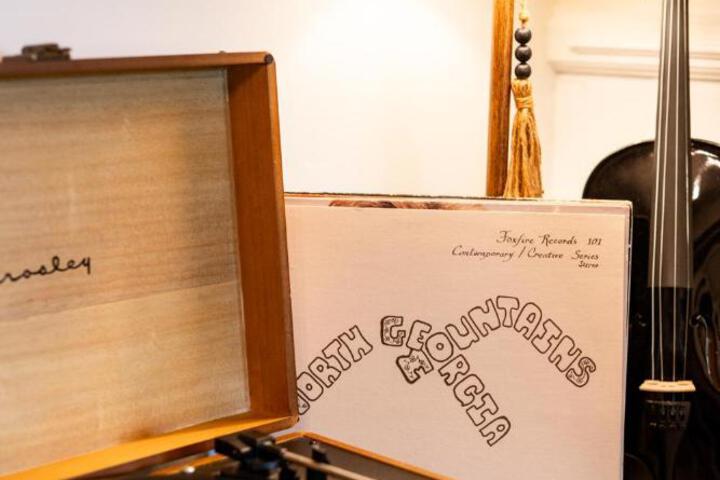 rosley
Foxfire Records 101
Contemporary / Creative Series
Stereo
ORTH
GEORGIA
MOUNTAINS